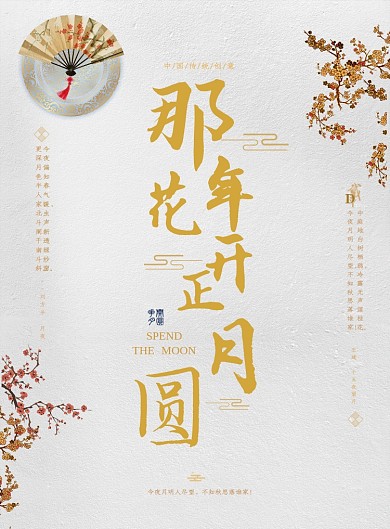 中/国/传/统/创/意
那年花开正月圆
SPEND
THE MOON
更深月色半人家北斗阑干南斗斜
今夜偏知春气暖虫声新透绿纱窗
D
中庭地白树栖鸦冷露无声湿桂花
今夜月明人尽望不知秋思落谁家
今夜月明人尽望，不知秋思落谁家！